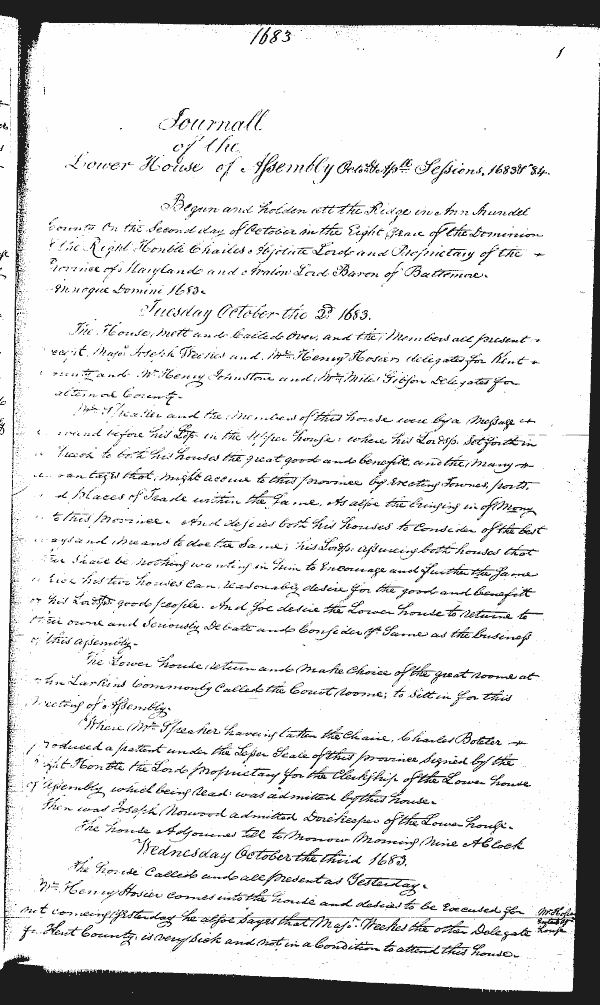 1683
1
Journall
of the
Lower House of Assembly Sessions, 1683
Begun and holden att the Ridge in Ann Arundel
County On the Second day of October in the Eight yeare of the Dominion
the Right Honble Charles Absolute Lord and Proprietary of the
Province of Maryland and Avalon Lord Baron of Baltemore.
Annoque Domini 1683.
Tuesday October the 2d 1683.
The House mett and Called Over, and the Members all present
except Majr Joseph Weekes and Mr Henry Hosier delegates for Kent
County and Mr Henry Johnstone and Mr Miles Gibson Delegates for
altemore County.
Mr Speaker and the members of this house were by a Message
before his Lsp. in the Upper house: where his Lordsp. Set forth in
Speech to both his houses the great good and benefitt, and the many
vantages that might accrue to this province by Erecting Townes, ports
d Places of Trade within the Same, As also the bringing in of Mony
to this Province. And desires both his houses to Consider of the best
ways and means to doe the Same, his Lordsp. assureing both houses that
there Shall be nothing wanting in him to Encourage and further the Same
which his two houses Can reasonably desire for the good and benefitt
of his Lordsps good people. And soe desire the Lower house to returne to
their owne and Seriously Debate and Consider ye Same as the business
of this assembly.
The Lower house return and make Choice of the great roome at
John Larkins Commonly Called the Court roome, to Sitt in for this
Meeting of Assembly.
Where Mr Speaker haveing taken the Chaire, Charles Boteler
produced a patent under the Lesser Seale of this province Signed by the
Right Honble the Lord Proprietary for the Clerkship of the Lower house
of Assembly which being read was admitted by this house.
Then was Joseph Norwood admitted Dorekeeper of the Lower house.
The house Adjournes till to Morrow Morning Nine A Clock
Wednesday October the third 1683.
The house Called and all present as Yesterday.
Mr Henry Hosier comes into the house and desires to be Excused for
not comeing Yesterday he alsoe Sayes that Majr Weekes the other Delegate
for Kent County is very Sick and not in a Condition to attend this house.
Mr Hosier
house